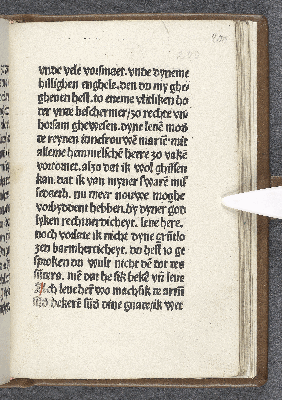 vnde vele vorsmaet. vnde dyneme
hillighen enghele. den du my ghe
gheuen hest. to eneme vlitliken ho
der vnde beschermer/ so rechte vn
horsam ghewesen. dyne leuē mod
te reynen iunckfrouwē mariē mit
alleme hemmelschē here so vakē
vortornet. also dat ik wol ghissen
kan. dat ik van myner sware mis
dedē. nu mer nouwe moghe
vorbyddent hebben. by dyner got
lyken rechtuerdicheyt. leue here.
noch vorlate ik nicht dyne grūtlo
zen barmherticheyt. du hest io ge
sproken du wult nicht dē dot des
sūders. mē dat he sik bekē vn leue
Ach leue her wo mach sik de arm
sūder bekerē sūd dine gnade/ ik wet